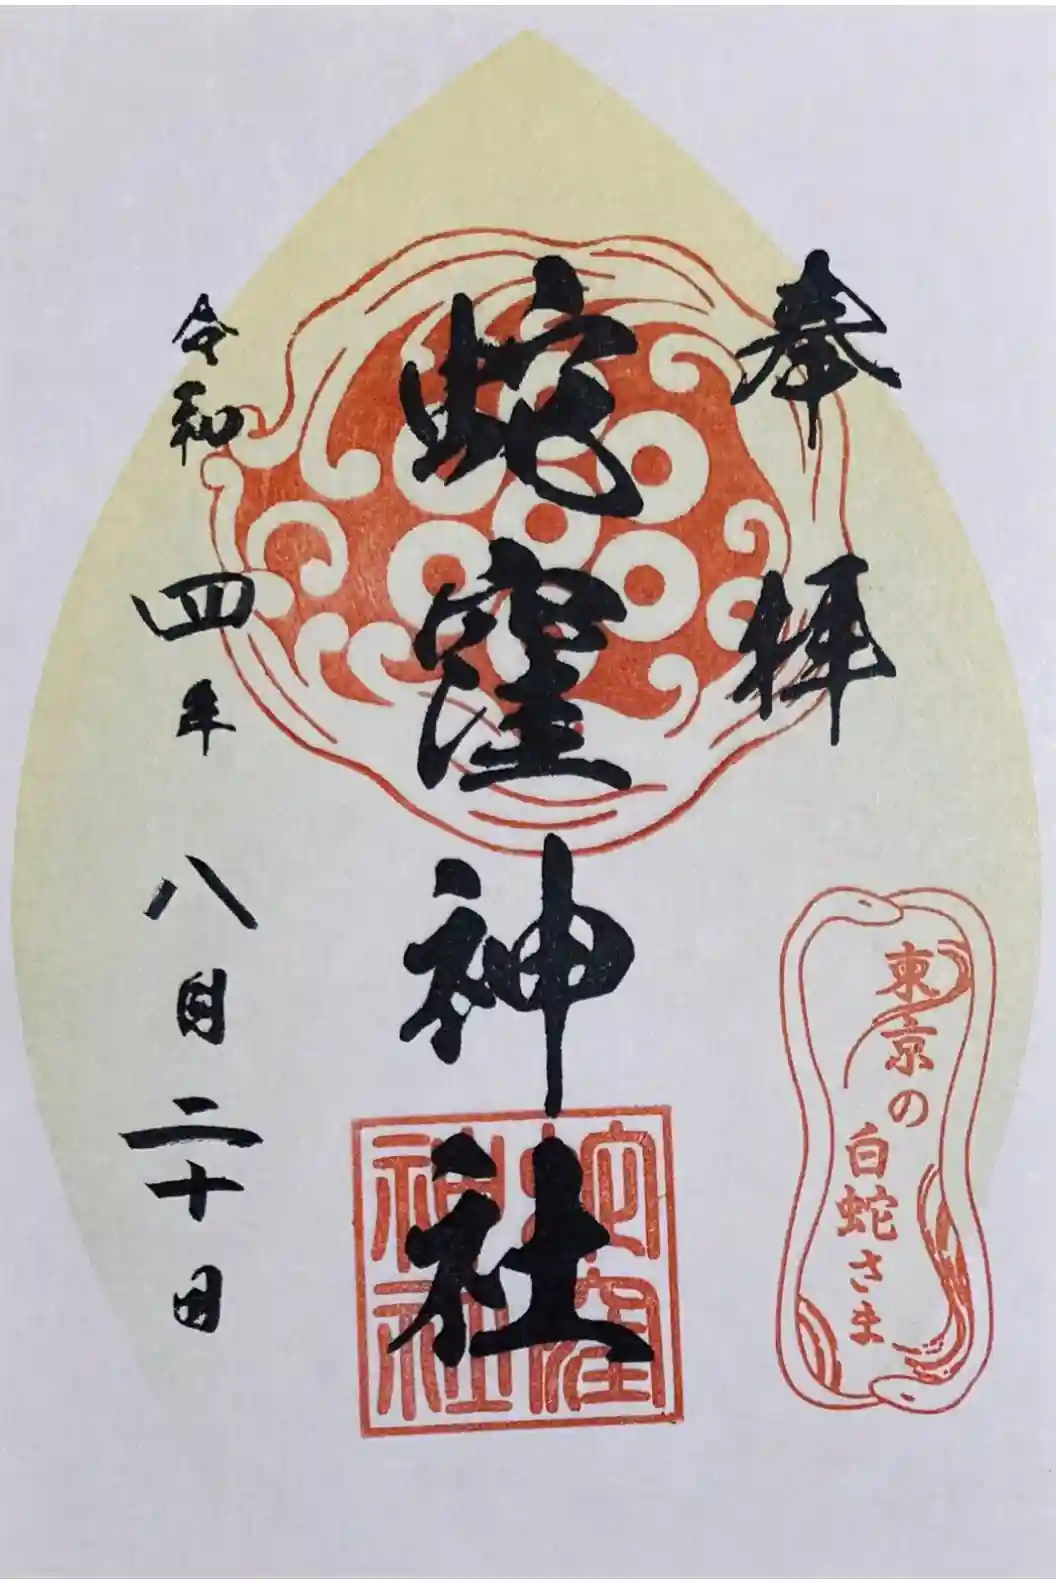 奉拝
東京の
白蛇さま
蛇窪神社
蛇窪
神社
令和四年八月二十日